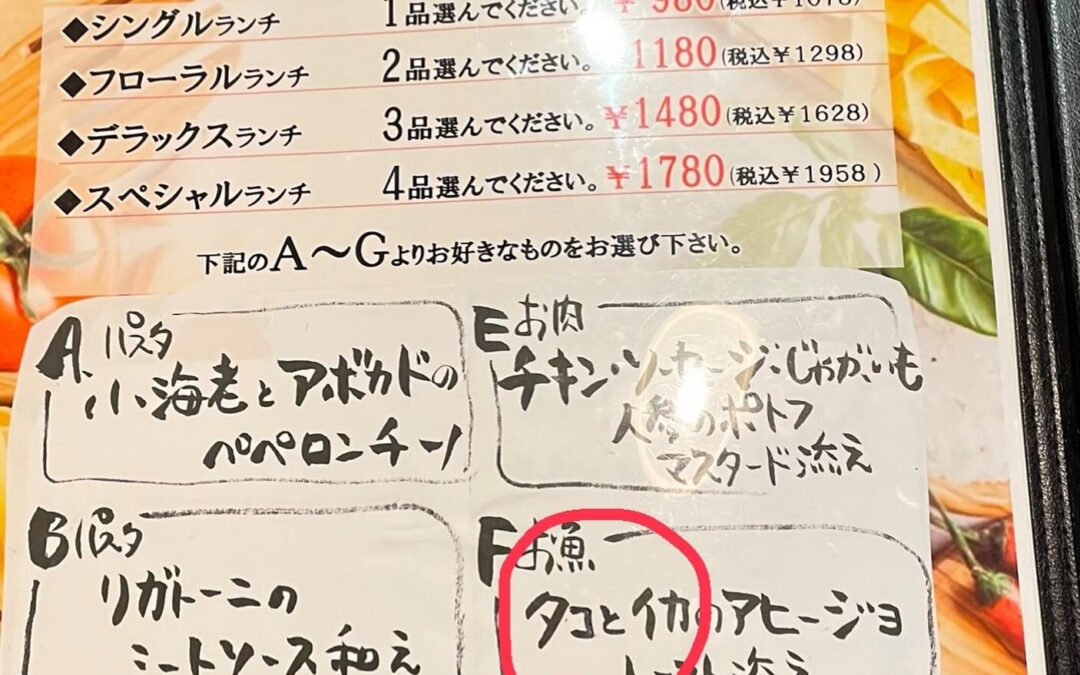 ◆シングルランチ 1品選んでください。 ¥980(税込¥1078)
◆フローラルランチ 2品選んでください。 1180(税込¥1298)
◆デラックスランチ 3品選んでください。 ¥1480(税込¥1628)
◆スペシャルランチ 4品選んでください。 ¥1780(税込¥1958)
下記のA〜Gよりお好きなものをお選び下さい。
A. パスタ
小海老とアボカドの
ペペロンチーノ
B パスタ
リガトーニの
ミートソース和え
E お肉
チキン・ソーセージ・じゃがいも
人参のポトフ
マスタード添え
F お魚
タコとイカのアヒージョ
添え